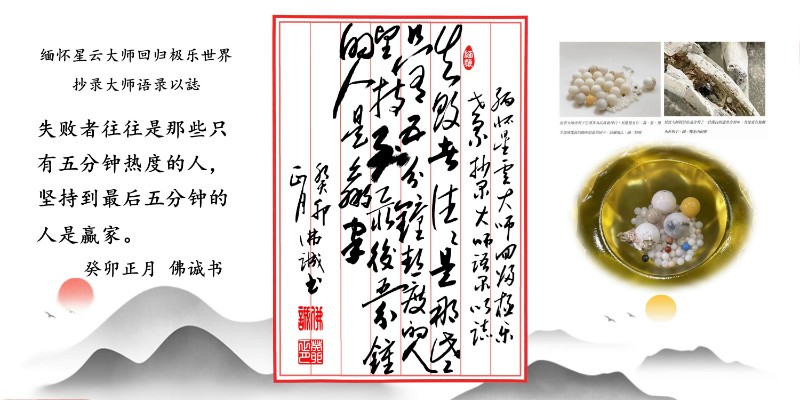 缅怀星云大师回归极乐世界
抄录大师语录以誌
失败者往往是那些只
有五分钟热度的人，
坚持到最后五分钟的
人是赢家。
癸卯正月 佛诚书
缅怀星雲大师回归极乐
世界抄录大师语录以誌
失败者往往是那些
只有五分鐘热度的人
坚持到最後五分鐘
的人是赢家
癸卯
正月佛诚书